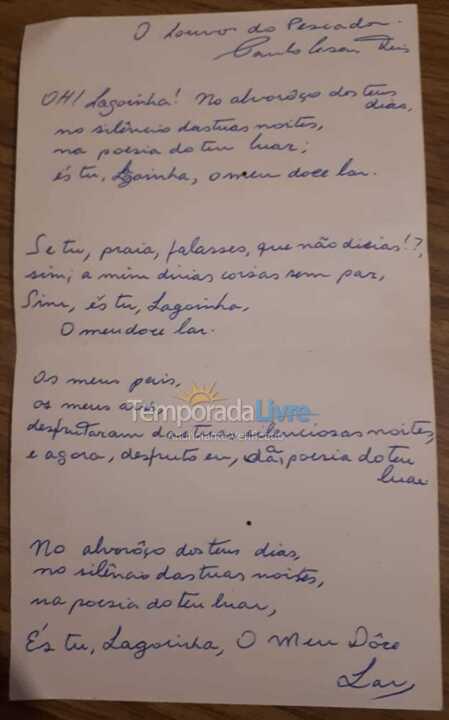 O Louvor do Pescador.
Paulo Cesar Reis
OH! Lagoinha! No alvorôço dos teus
dias,
no silêncio das tuas noites,
na poesia do teu luar;
és tu, Lagoinha, o meu doce lar.
Se tu, praia, falasses, que não dirias!?,
sim; a mim dirias coisas sem par,
Sim, és tu, Lagoinha,
O meu doce lar.
Os meus pais,
os meus avós,
TemporadaLivre
desfrutaram das tuas silenciosas noites,
e agora, desfruto eu, da poesia do teu
luar
No alvorôço dos teus dias,
no silêncio das tuas noites,
na poesia do teu luar,
És tu, Lagoinha, O Meu Dôce
Lar,